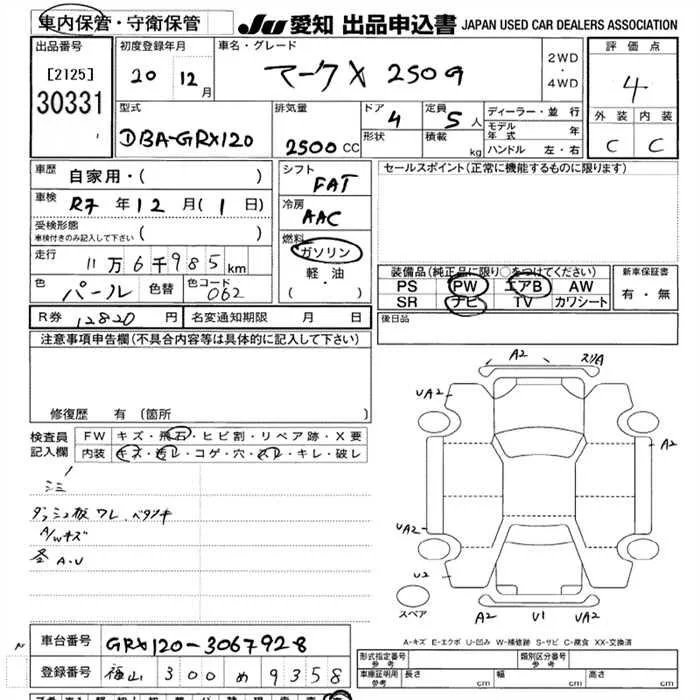 車内保管・守衛保管 JU 愛知 出品申込書 JAPAN USED CAR DEALERS ASSOCIATION
出品番号 初度登録年月 車名・グレード 評価点
[2125] 20 12月 マークX 250G 2WD・4WD 4
30331 型式 排気量 ドア 4 定員 5人 ディーラー・並行 外装 内装
DBA-GRX120 2500CC 形状 積載 kg モデル年式 年 C C
ハンドル 左・右
車歴 自家用・( ) シフト FAT セールスポイント(正常に機能するものに限ります)
車検 R7年12月(1日) 冷房 AAC
受検形態 ( )
車検付きのみ記入して下さい
走行 11万6千985km 燃料 ガソリン
軽・油
・( )
色 パール 色替 色コード 062
装備品(純正品に限り○をつけてください) 新車保証書
PS PW エアB AW 有・無
SR ナビ TV カワシート
R券 12820円 名変通知期限 月 日 後日品
注意事項申告欄(不具合内容等は具体的に記入して下さい)
修復歴 有(箇所
検査員記入欄 FW キズ・飛石・ヒビ割・リペア跡・X要
内装 キズ・汚レ・コゲ・穴・スレ・キレ・破レ
シミ
ダッシュ板 ワレ、ベタツキ
A/Wキズ
各 A・U
A2 スリA
UA2
A2
UA2
U2
スペア A2 U1 UA2
A-キズ E-エクボ U-凹み W-補修跡 S-サビ C-腐食 XX-交換済
車台番号 GRX120-3067928
登録番号 福山 300 め 9358
形式指定番号 参考 類別区分番号 参考
車庫証明用 参考 長さ cm 幅 cm 高さ cm